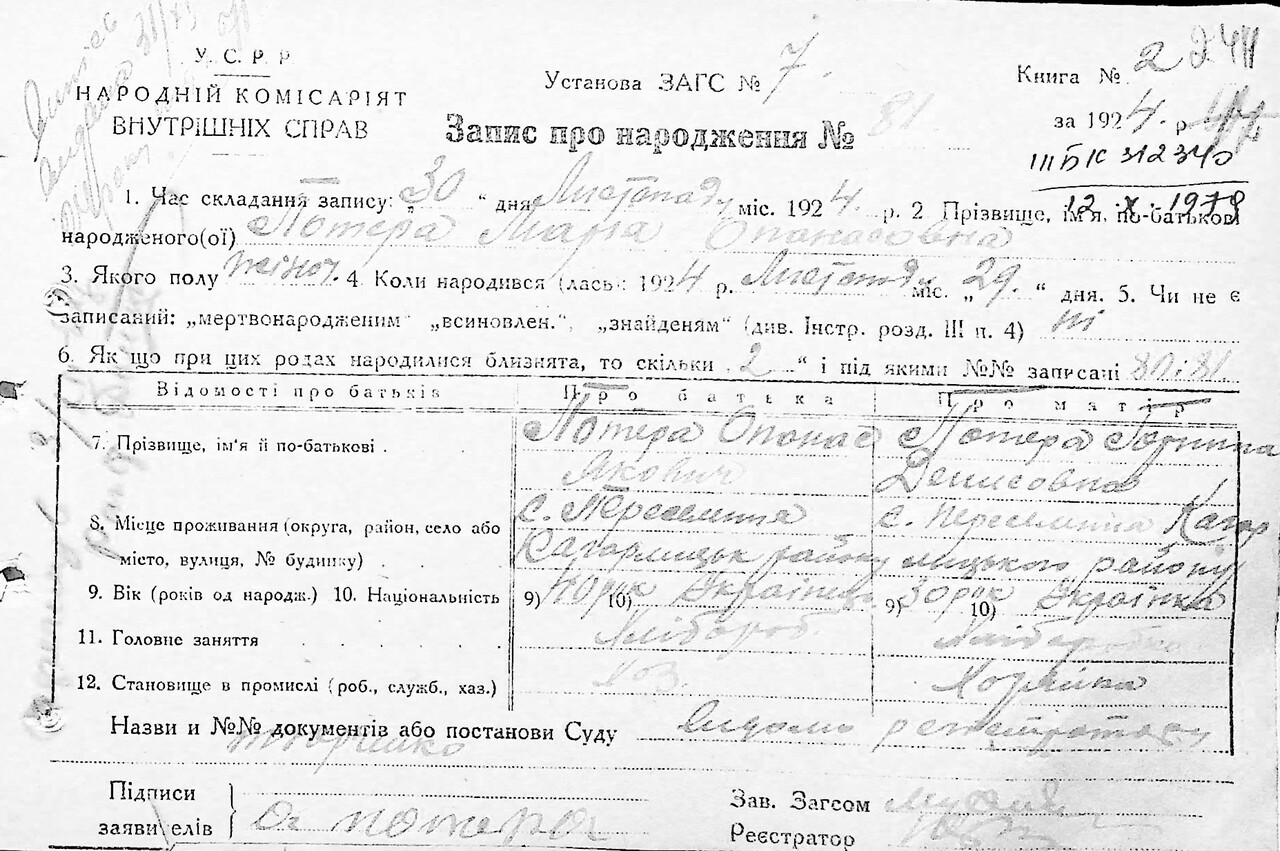 У. С. Р. Р
НАРОДНІЙ КОМІСАРІЯТ
ВНУТРІШНІХ СПРАВ
Установа ЗАГС № 7.
Книга № 2 244
за 1924. р.
Запис про народження № 81
ІІІ БК 312340
12. X. 1978
1. Час складання запису: „30“ дня Листопаду міс. 1924. р. 2 Прізвище, ім'я, по-батькові
народженого(ої) Потера Марія Опонасовна
3. Якого полу жіноч. 4. Коли народився (лась): 1924 р. Листопаду міс. „29.“ дня. 5. Чи не є
записаний: „мертвонародженим“ „всиновлен.“, „знайденям“ (див. Інстр. розд. III п. 4) ні
6. Як що при цих родах народилися близнята, то скільки „2“ і під якими №№ записані 80 і 81.
Відомості про батьків Про батька Про матір
7. Прізвище, ім'я й по-батькові . Потера Опонас Потера Горпина
Якович Денисовна
8. Місце проживання (округа, район, село або с. Переселення с. Переселення Кагор
місто, вулиця, № будинку) . Кагорлицьк району лицького району
9. Вік (років од народж.) 10. Національність 9) 40 рік 10) Українець 9) 30 рік 10) Українка
11. Головне заняття . . . . . Хлібороб Хліборобка
12. Становище в промислі (роб., служб., хаз.) Хоз. Хозяйка
Назви и №№ документів або постанови Суду
Підписи
заявителів Оп Потера
Зав. Загсом
Реєстратор